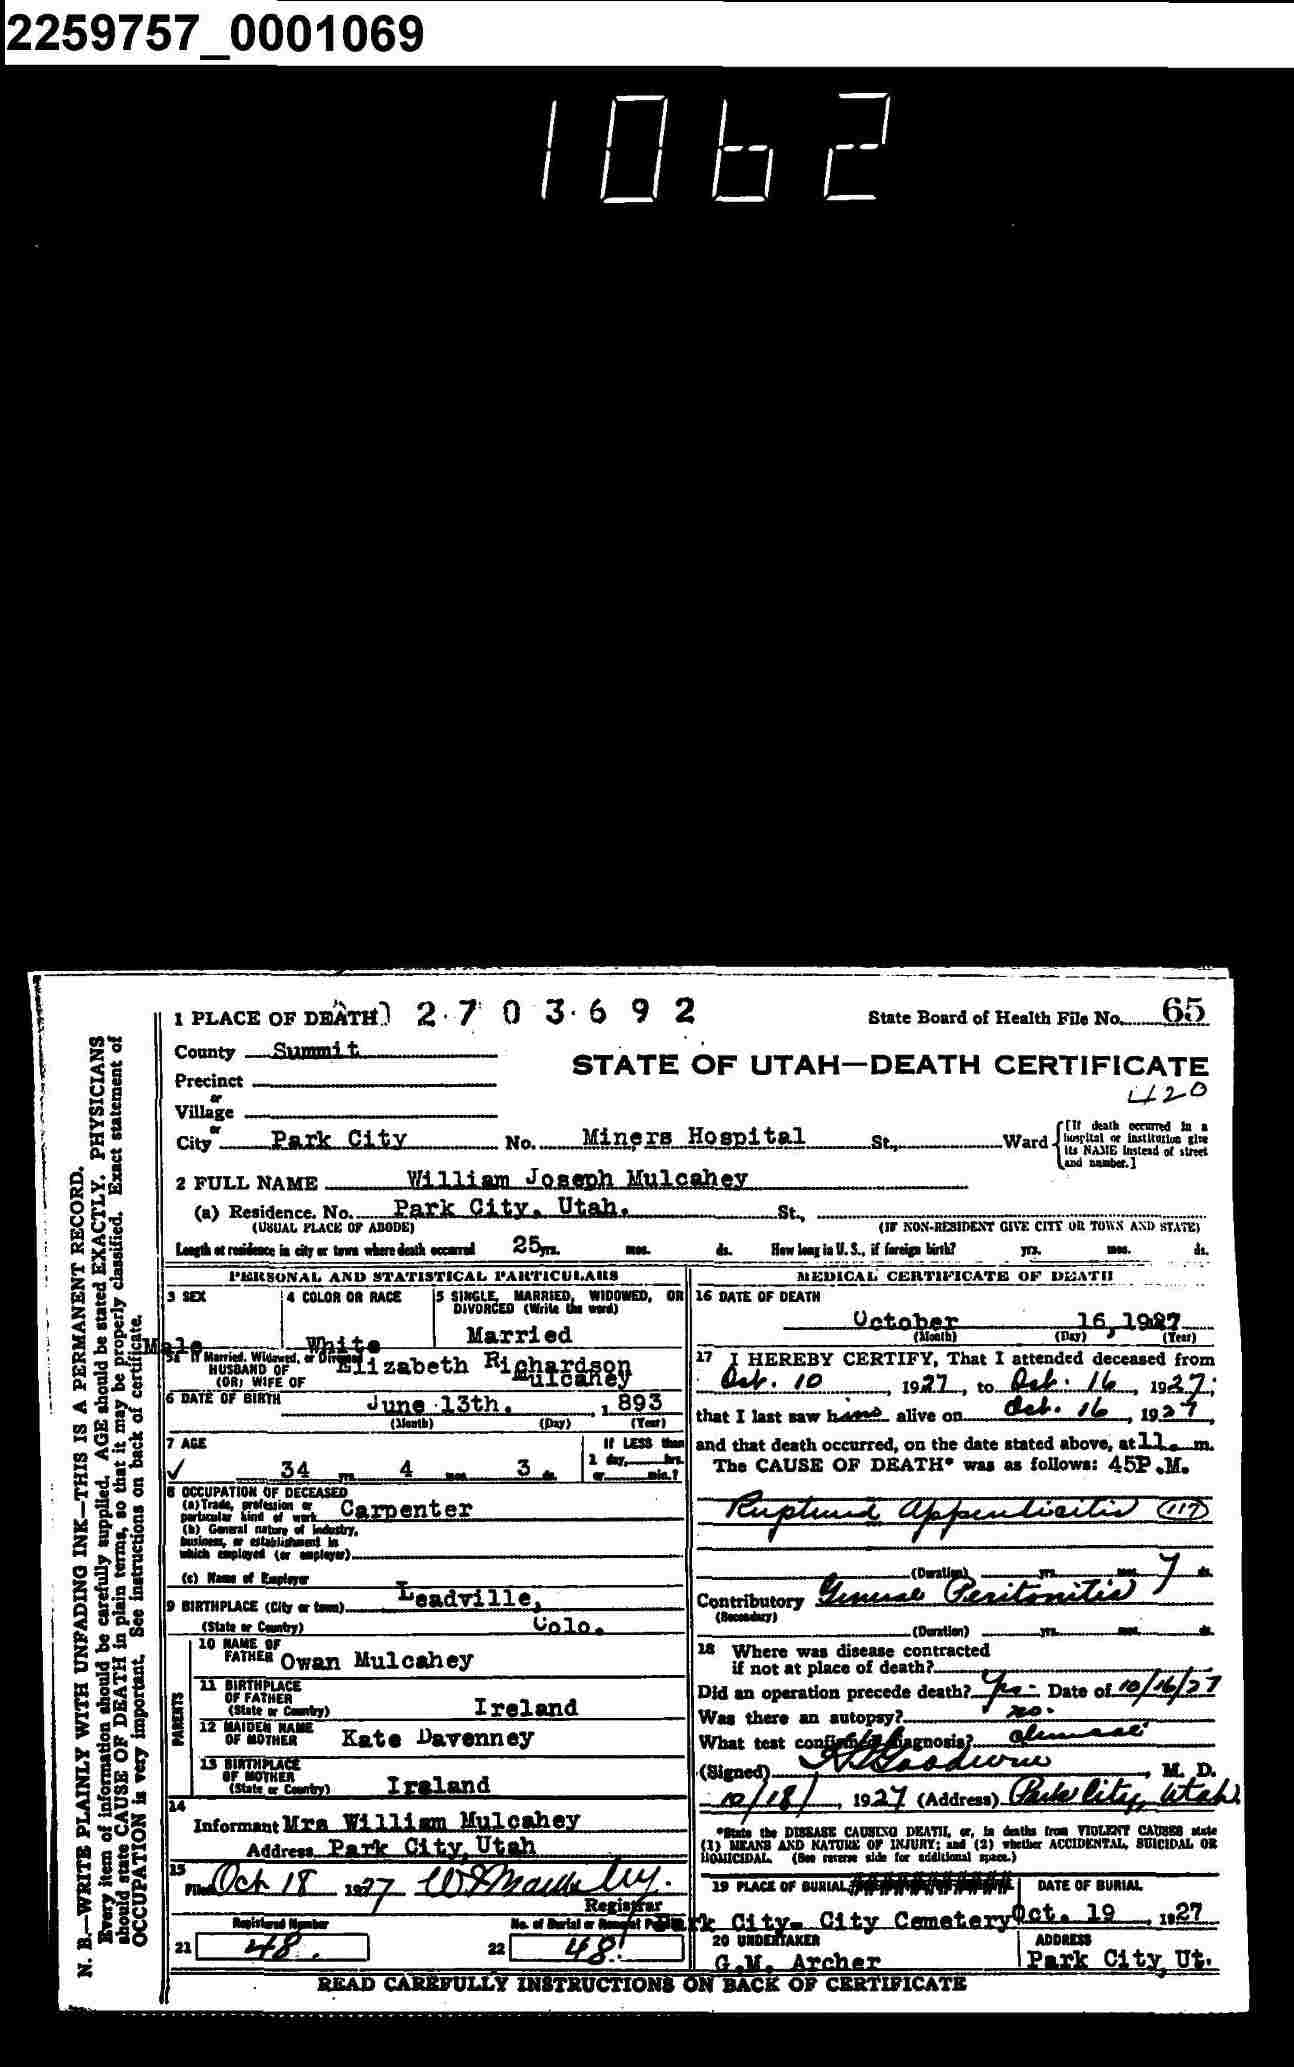 2259757_0001069
1062
1 PLACE OF DEATH 2703692 State Board of Health File No. 65
County Summit
STATE OF UTAH—DEATH CERTIFICATE
Precinct
420
or
Village
or
City Park City No. Miners Hospital St., Ward [If death occurred in a hospital or institution give its NAME instead of street and number.]
2 FULL NAME William Joseph Mulcahey
(a) Residence. No. Park City, Utah. St.,
(USUAL PLACE OF ABODE) (IF NON-RESIDENT GIVE CITY OR TOWN AND STATE)
Length of residence in city or town where death occurred 25 yrs. mos. ds. How long in U. S., if foreign birth? yrs. mos. ds.
PERSONAL AND STATISTICAL PARTICULARS
3 SEX
Male
4 COLOR OR RACE
White
5 SINGLE, MARRIED, WIDOWED, OR DIVORCED (Write the word)
Married
5a If Married, Widowed, or Divorced
HUSBAND OF
(OR) WIFE OF
Elizabeth Richardson
Mulcahey
6 DATE OF BIRTH June 13th. , 1893
(Month) (Day) (Year)
7 AGE
✓ 34 yrs. 4 mos. 3 ds.
If LESS than
1 day, hrs.
or min.?
8 OCCUPATION OF DECEASED
(a) Trade, profession or
particular kind of work Carpenter
(b) General nature of industry,
business, or establishment in
which employed (or employer)
(c) Name of Employer
9 BIRTHPLACE (City or town) Leadville,
(State or Country) Colo.
PARENTS
10 NAME OF
FATHER Owan Mulcahey
11 BIRTHPLACE
OF FATHER
(State or Country) Ireland
12 MAIDEN NAME
OF MOTHER Kate Davenney
13 BIRTHPLACE
OF MOTHER
(State or Country) Ireland
14
Informant Mrs William Mulcahey
Address Park City, Utah
15
Filed Oct 18 1927
Registrar
Registered Number
21 48.
No. of Burial or Removal Permit
22 48
MEDICAL CERTIFICATE OF DEATH
16 DATE OF DEATH
October 16, 1927
(Month) (Day) (Year)
17 I HEREBY CERTIFY, That I attended deceased from
Oct. 10, 1927, to Oct. 16, 1927;
that I last saw him alive on Oct. 16, 1927,
and that death occurred, on the date stated above, at 11. m.
The CAUSE OF DEATH* was as follows: 45P.M.
Ruptured Appendicitis (117)
(Duration) yrs. mos. 7 ds.
Contributory General Peritonitis
(Secondary)
(Duration) yrs. mos. ds.
18 Where was disease contracted
if not at place of death?
Did an operation precede death? Yes- Date of 10/16/27
Was there an autopsy? no.
What test confirmed diagnosis? clinical
(Signed) M. D.
10/18/, 1927 (Address) Park City, Utah.
*State the DISEASE CAUSING DEATH, or, in deaths from VIOLENT CAUSES state
(1) MEANS AND NATURE OF INJURY; and (2) whether ACCIDENTAL, SUICIDAL OR
HOMICIDAL. (See reverse side for additional space.)
19 PLACE OF BURIAL
Park City- City Cemetery
DATE OF BURIAL
Oct. 19, 1927
20 UNDERTAKER
G.M. Archer
ADDRESS
Park City, Ut.
READ CAREFULLY INSTRUCTIONS ON BACK OF CERTIFICATE
N. B.—WRITE PLAINLY WITH UNFADING INK—THIS IS A PERMANENT RECORD.
Every item of information should be carefully supplied. AGE should be stated EXACTLY. PHYSICIANS
should state CAUSE OF DEATH in plain terms, so that it may be properly classified. Exact statement of
OCCUPATION is very important. See instructions on back of certificate.